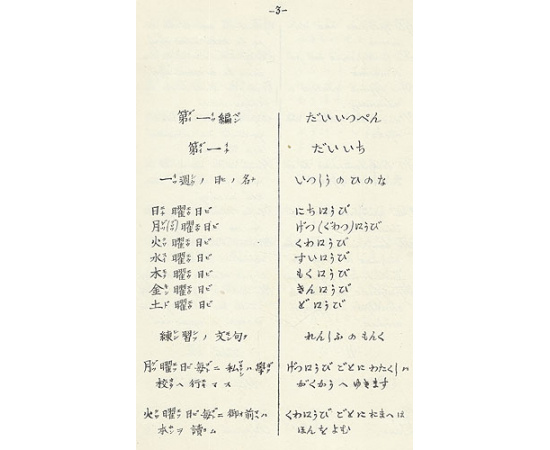 -3-
第一編
第一
一週ノ日ノ名
日曜日
月曜日
火曜日
水曜日
木曜日
金曜日
土曜日
練習ノ文句
月曜日毎ニ私ハ學
校ヘ行マス
火曜日毎ニ御前ハ
本ヲ讀ム
だいいつぺん
だいいち
いつしうのひのな
にちえうび
げつ(ぐわつ)えうび
くわえうび
すいえうび
もくえうび
きんえうび
どえうび
れんしふのもんく
げつえうびごとにわたくしハ
がくかうへゆきます
くわえうびごとにおまへは
ほんをよむ